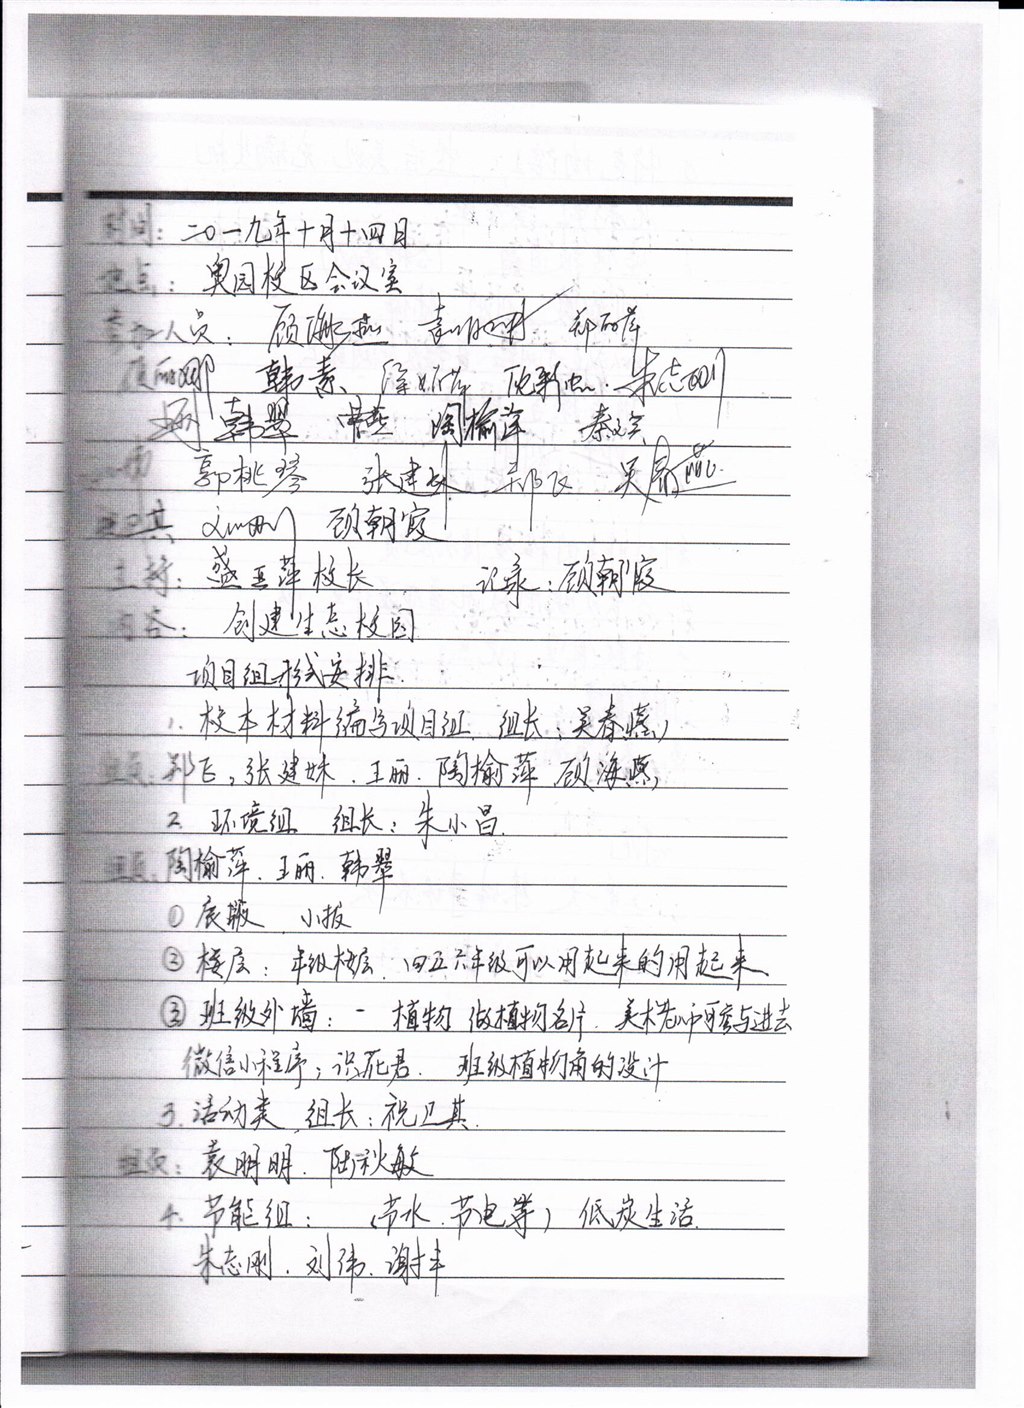 时间：二〇一九年十月十四日
地点：奥园校区会议室
参加人员：顾海燕 袁明明 郑丽萍
韩素 朱志刚
韩翠 陶榆萍 秦
郭桃琴 张建妹 郑飞 吴春燕
卫其 顾朝霞
主持：盛玉萍校长 记录：顾朝霞
内容：创建生态校园
项目组形式安排
1. 校本材料编写项目组 组长：吴春燕
组员：郑飞、张建妹、王丽、陶榆萍 顾海燕
2. 环境组 组长：朱小昌
组员：陶榆萍、王丽、韩翠
① 底版 小报
② 楼层：年级楼层 四五六年级可以用起来的用起来
③ 班级外墙：一 植物 做植物名片、美术老师可参与进去
微信小程序；识花君、班级植物角的设计
3. 活动类 组长：祝卫其
组员：袁明明、陆秋敏
4. 节能组：（节水、节电等）低炭生活
朱志刚、刘伟、谢丰